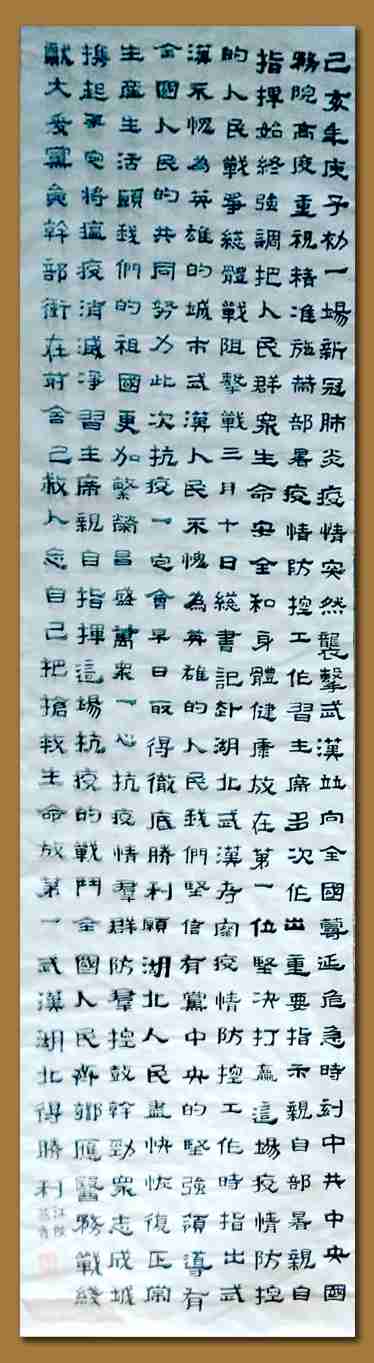 己亥年庚子初一場新冠肺炎疫情突然襲擊武漢並向全國蔓延危急時刻中共中央國
務院高度重視精准施策部署疫情防控工作習主席多次作出重要指示親自部署親自
指揮始終強調把人民群衆生命安全和身體健康放在第一位堅決打贏這場疫情防控
的人民戰爭總體戰阻擊戰三月十日總書記赴湖北武漢考察疫情防控工作時指出武
漢不愧為英雄的城市武漢人民不愧為英雄的人民我們堅信有黨中央的堅強領導有
全國人民的共同努力此次抗疫一定會早日取得徹底勝利願湖北人民盡快恢復正常
生産生活願我們的祖國更加繁榮昌盛萬衆一心抗疫情羣群防羣控鼓幹勁衆志成城
携起手定將瘟疫消滅淨習主席親自指揮這場抗疫的戰鬥全國人民齊響應醫務戰綫
獻大愛黨員幹部衝在前舍己救人忘自己把搶救生命放第一武漢湖北得勝利